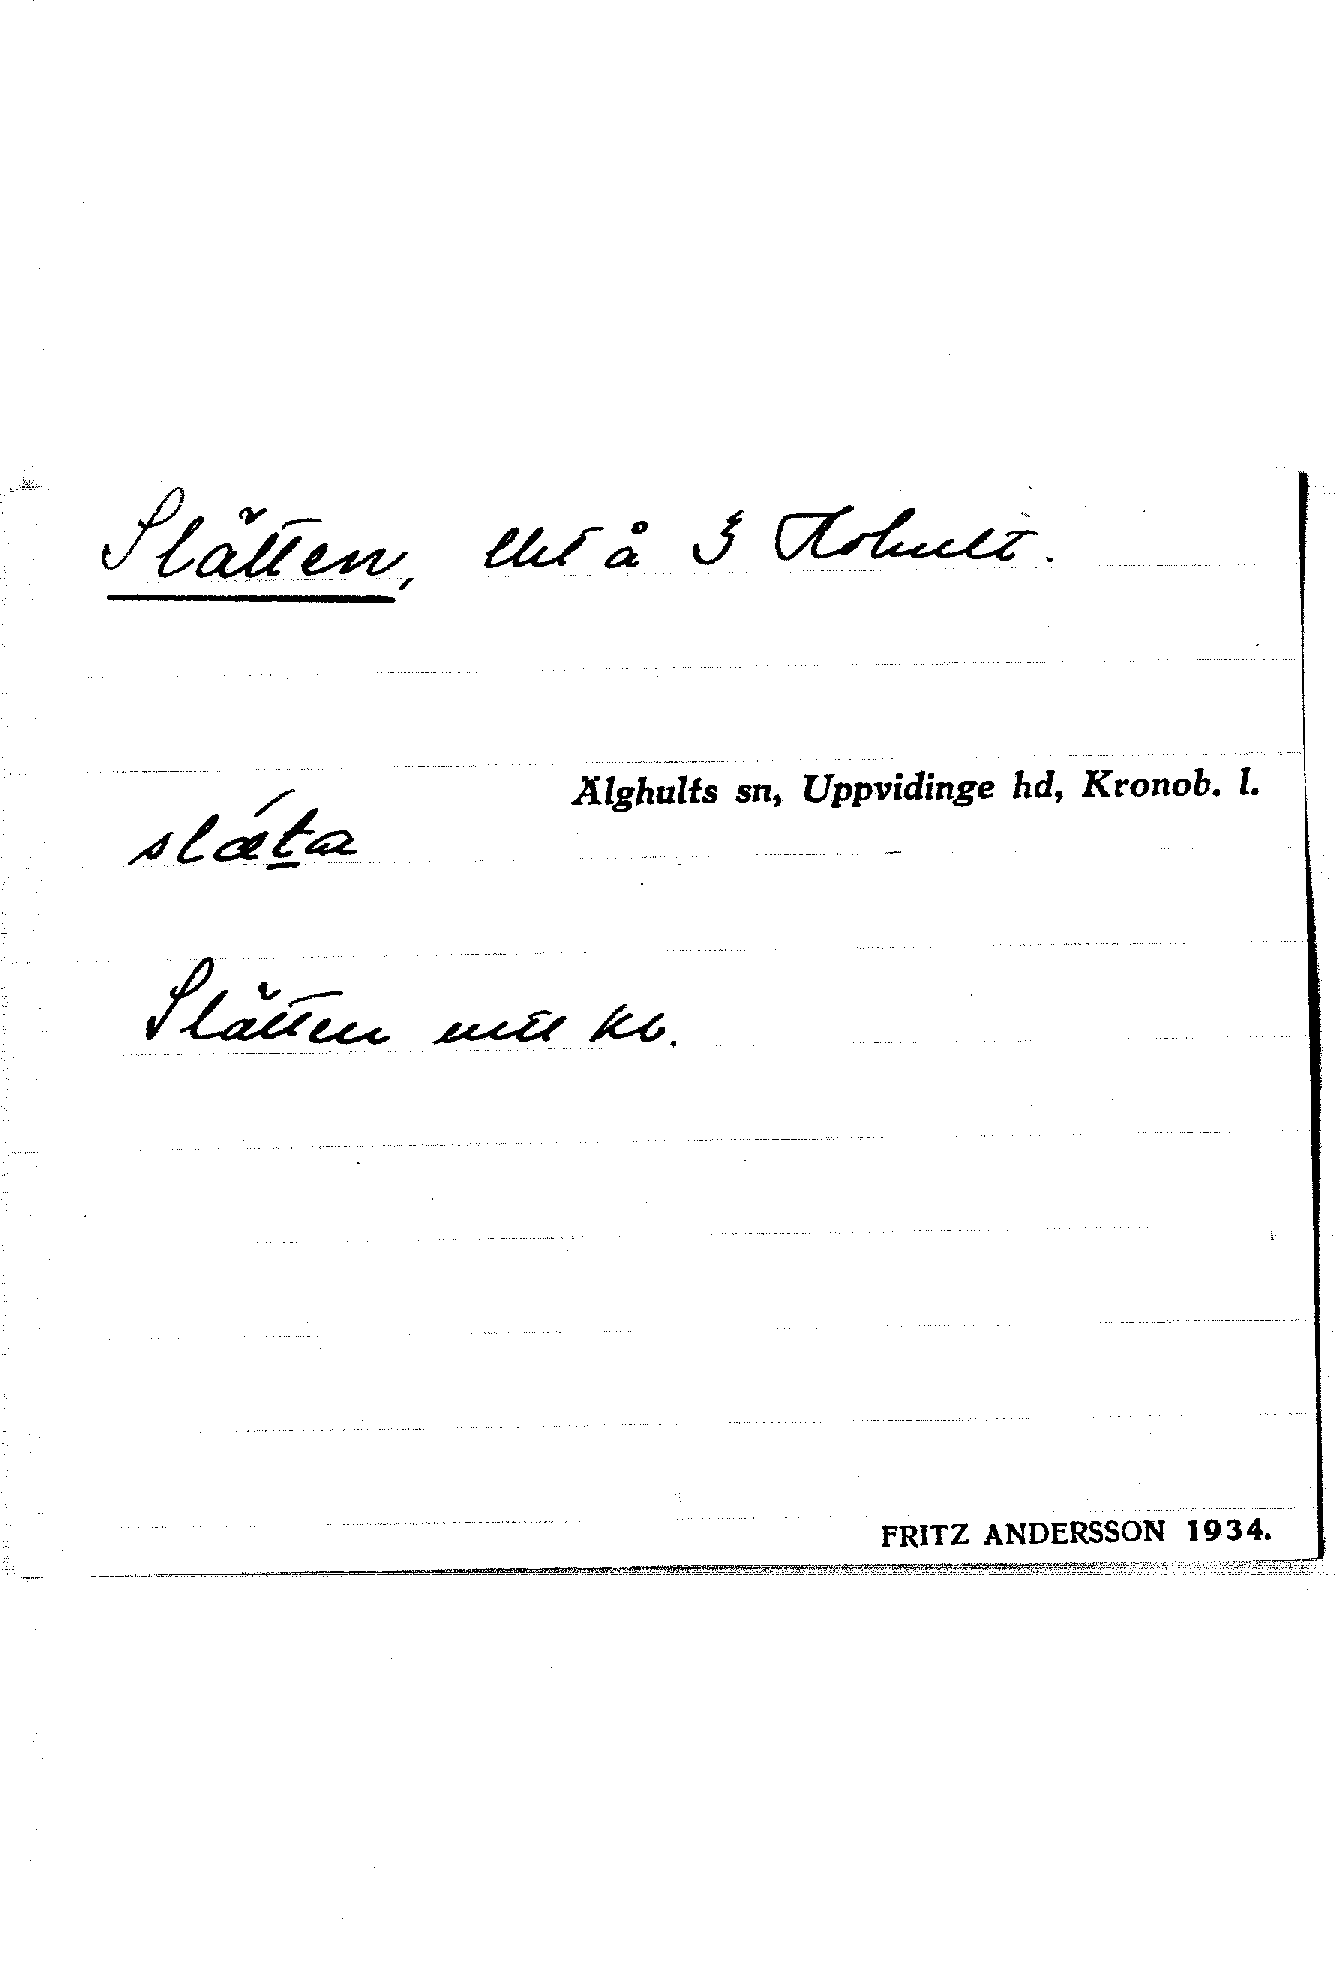 Slätten, lht å 3 Hohult.
Älghults sn, Uppvidinge hd, Kronob. l.
slǽta
Slätten uttl kb.
FRITZ ANDERSSON 1934.